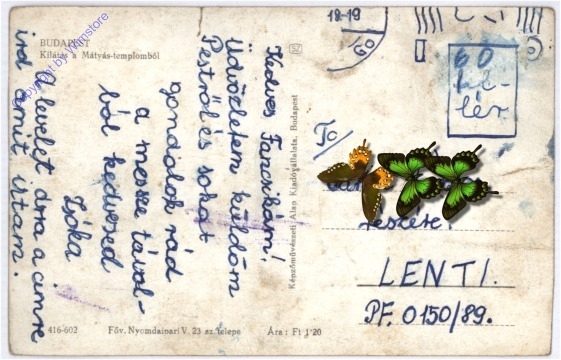 BUDAPEST
Kilátás a Mátyás-templomból
Kedves Fancsikám!
Üdvözletem küldöm
Pestről és sokat
gondolok rád
a messze távol-
ból kedvesed
Zsóka
A levelet arra a címre
írd amit írtam.
416-602
Főv. Nyomdaipari V. 23 sz. telepe
Ára: Ft 1'20
Képzőművészeti Alap Kiadóvállalata, Budapest
18-19
60
fil-
lér
részére.
LENTI.
PF. 0150/89.
Copyright by: Wumstore